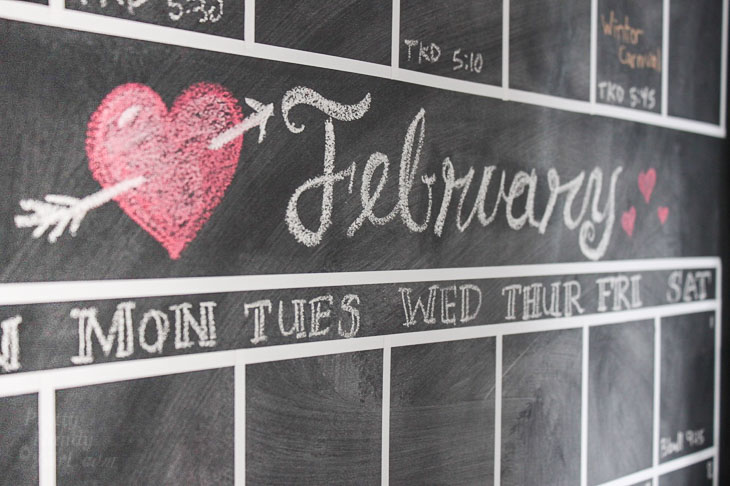 5:30
TKD 5:10
Winter
Carnival
TKD 5:45
February
N MON TUES WED THUR FRI SAT
1
9:15
Pretty
Handy